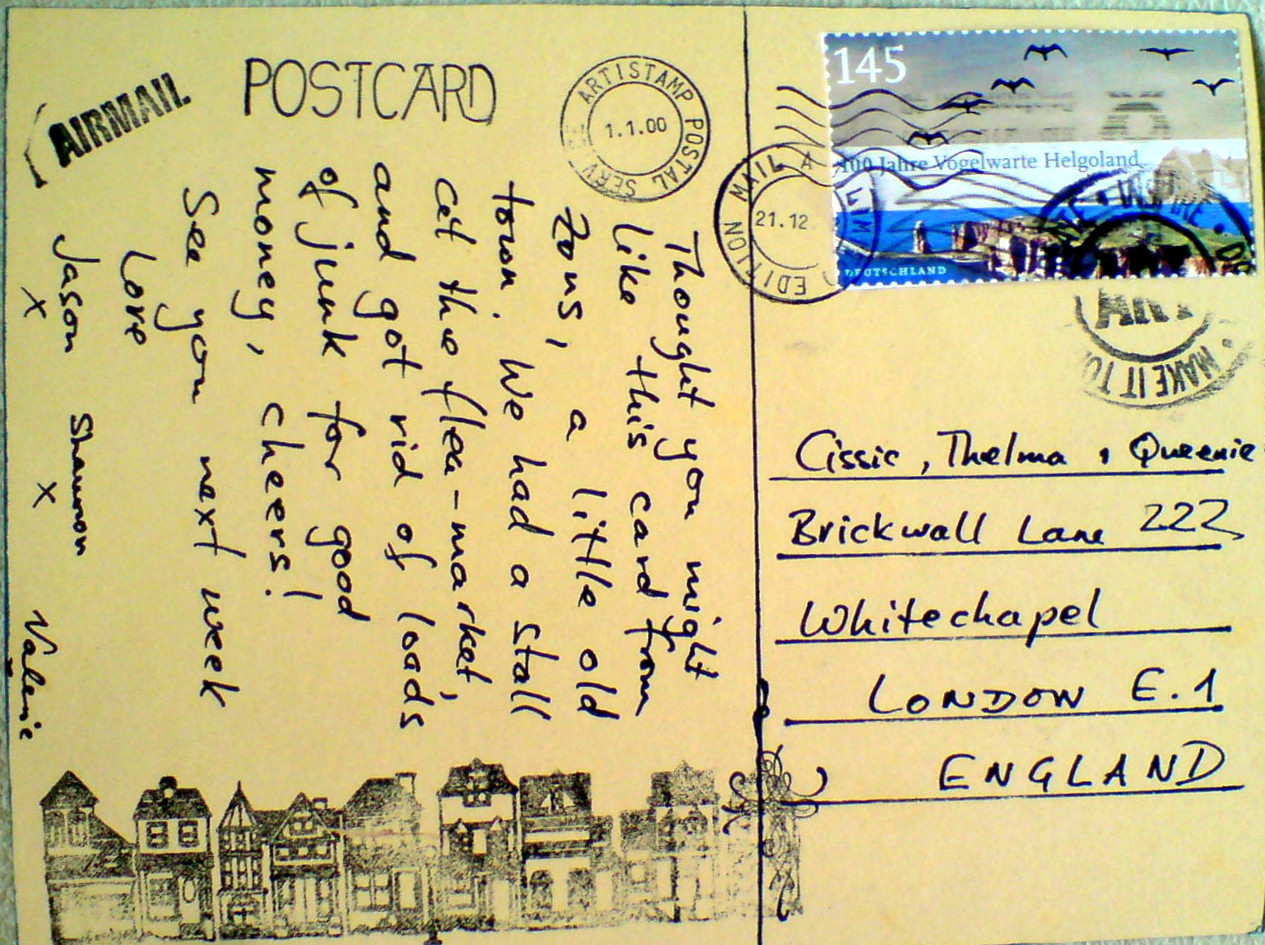 AIRMAIL
POSTCARD
ARTISTAMP POSTAL SERV
1.1.00
Thought you might
like this card from
Zons, a little old
town. We had a stall
at the flea-market,
and got rid of loads
of junk for good
money, cheers!
See you next week
Love
Jason Shannon Valerie
x x
145
100 Jahre Vogelwarte Helgoland
DEUTSCHLAND
MAIL A
21.12.
EDITION
INSPIRE
ART
MAKE IT
Cissie, Thelma, Queenie
Brickwall Lane 222
Whitechapel
LONDON E.1
ENGLAND